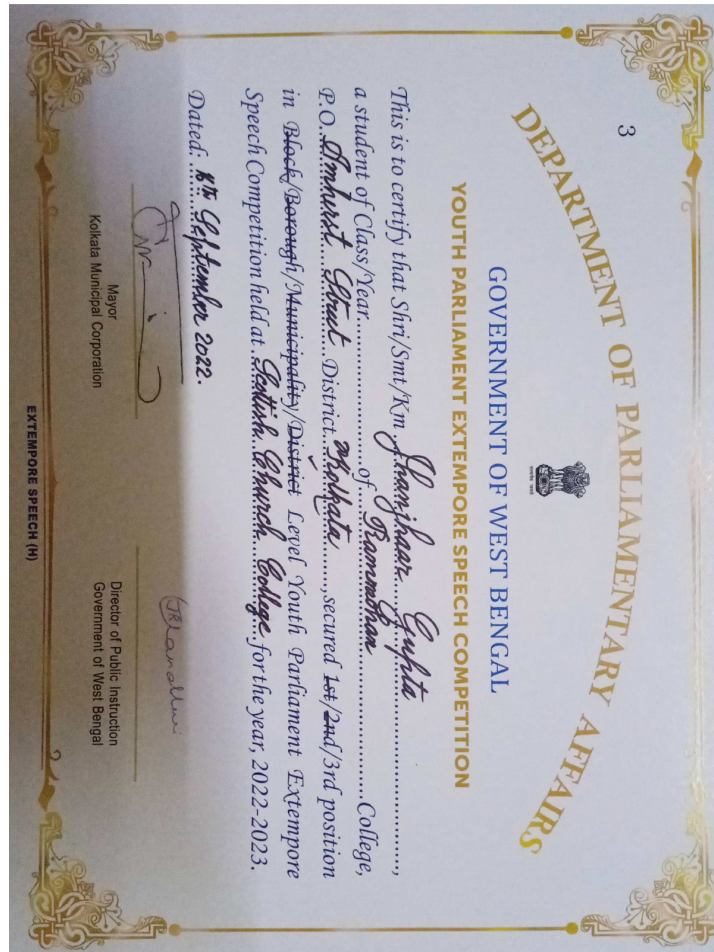 3
DEPARTMENT OF PARLIAMENTARY AFFAIRS
सत्यमेव जयते
GOVERNMENT OF WEST BENGAL
YOUTH PARLIAMENT EXTEMPORE SPEECH COMPETITION
This is to certify that Shri/Smt/Km Jhanjhaar Gupta,
a student of Class/Year of Rammohan College,
P.O. Amhurst Street District Kolkata, secured 1st/2nd/3rd position
in Block/Borough/Municipality/District Level Youth Parliament Extempore
Speech Competition held at Scottish Church College for the year, 2022-2023.
Dated: 16th September 2022.
Mayor
Kolkata Municipal Corporation
Director of Public Instruction
Government of West Bengal
EXTEMPORE SPEECH (H)